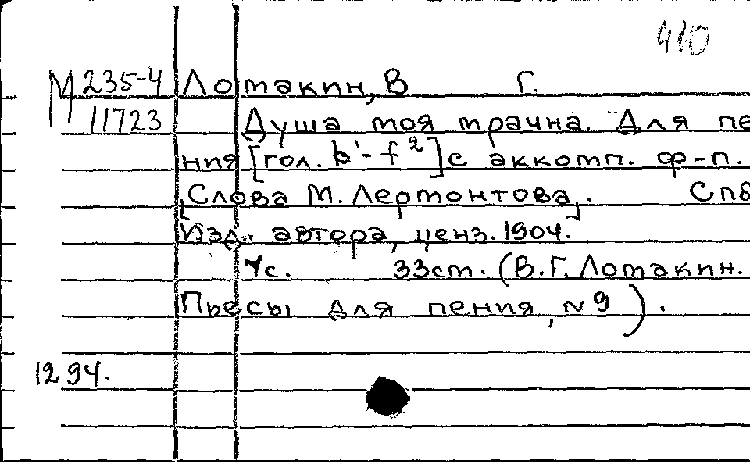 410
М 235-4 Лотакин, В Г.
11723 Душа моя мрачна. Для пе
ния [гол. b'-f²] с аккомп. ф-п.
[Слова М. Лермонтова]. Спб
Изд. автора, ценз. 1904.
4с. 33см. (В.Г. Лотакин.
Пьесы для пения, №9).
1294.